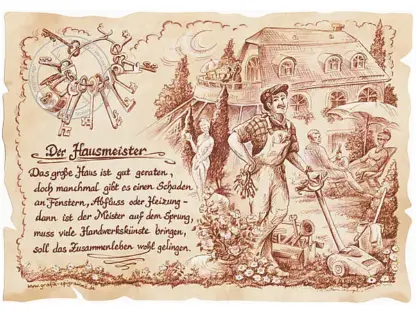 Der Hausmeister
Das große Haus ist gut geraten,
doch manchmal gibt es einen Schaden
an Fenstern, Abfluss oder Heizung -
dann ist der Meister auf dem Sprung,
muss viele Handwerkskünste bringen,
soll das Zusammenleben wohl gelingen.